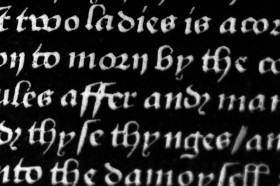 t two ladies is acor
on to morn by the co
ules affer and man
dy thyse thynges/an
nto the damoysell